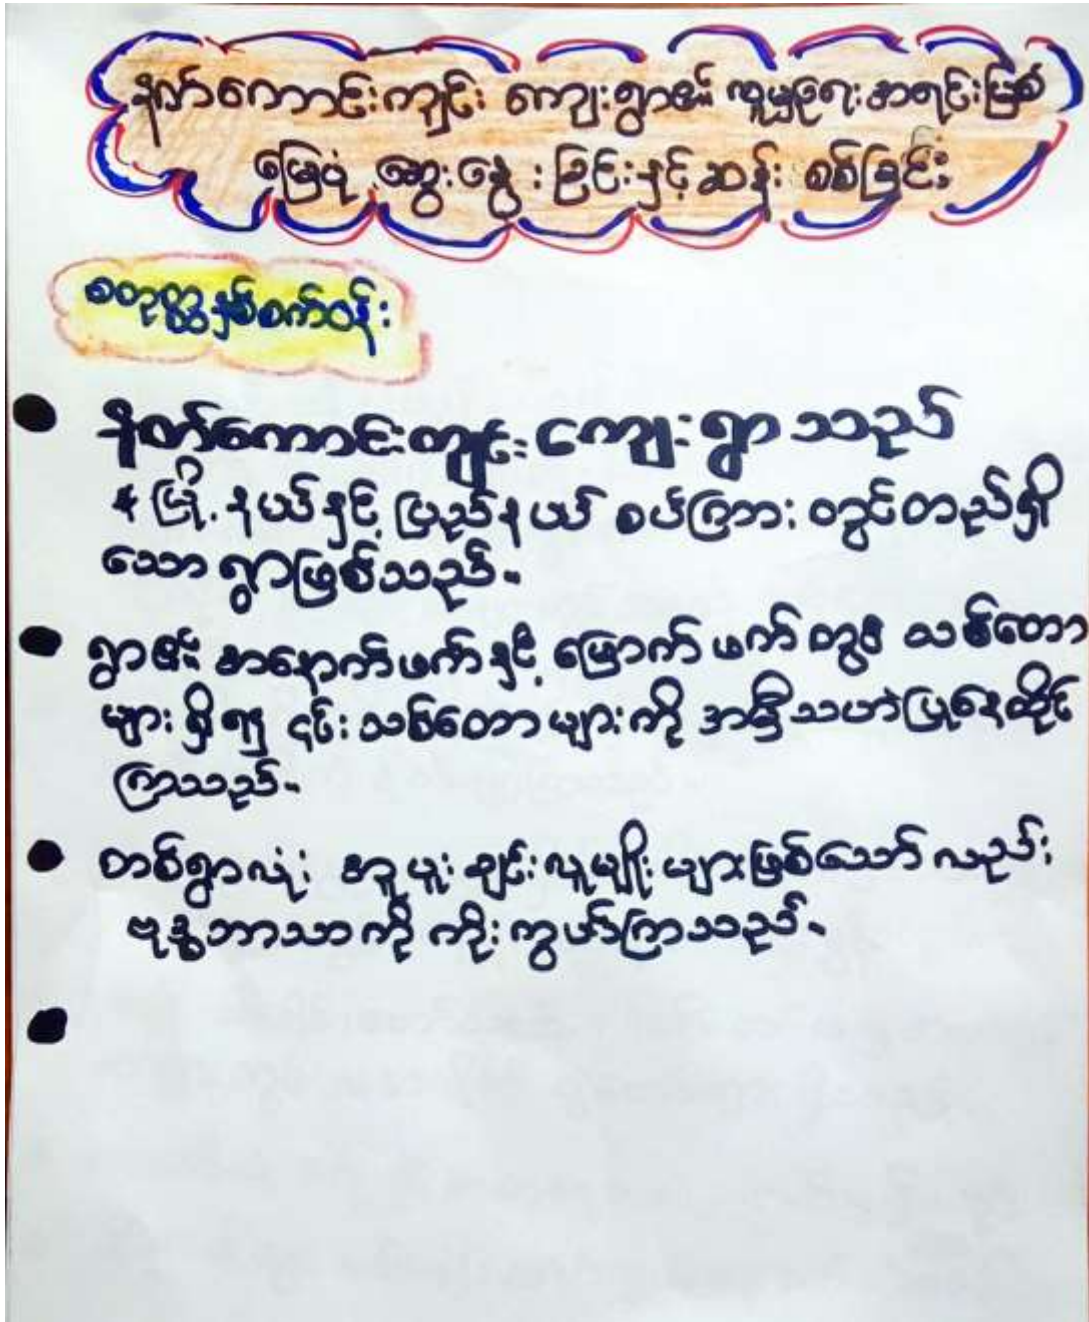 နတ်ကောင်းကျင်း ကျေးရွာ၏ လူမှုရေးအရင်းမြစ်
မြေပုံ ဆွေးနွေးခြင်းနှင့်ဆန်းစစ်ခြင်း
စတုတ္ထနှစ်စက်ဝန်း
● နတ်ကောင်းကျင်း ကျေးရွာသည်
၄ မြို့နယ်နှင့် ပြည်နယ် စပ်ကြား တွင်တည်ရှိ
သော ရွာဖြစ်သည်။
● ရွာ၏ အနောက်ဖက်နှင့် မြောက်ဖက်တွင် သစ်တော
များရှိရာ ၎င်းသစ်တောများကို အမှီသဟဲပြုနေထိုင်
ကြသည်။
● တစ်ရွာလုံး အူယူးချင်းလူမျိုးများဖြစ်သော်လည်း
ဗုဒ္ဓဘာသာကို ကိုးကွယ်ကြသည်။
●